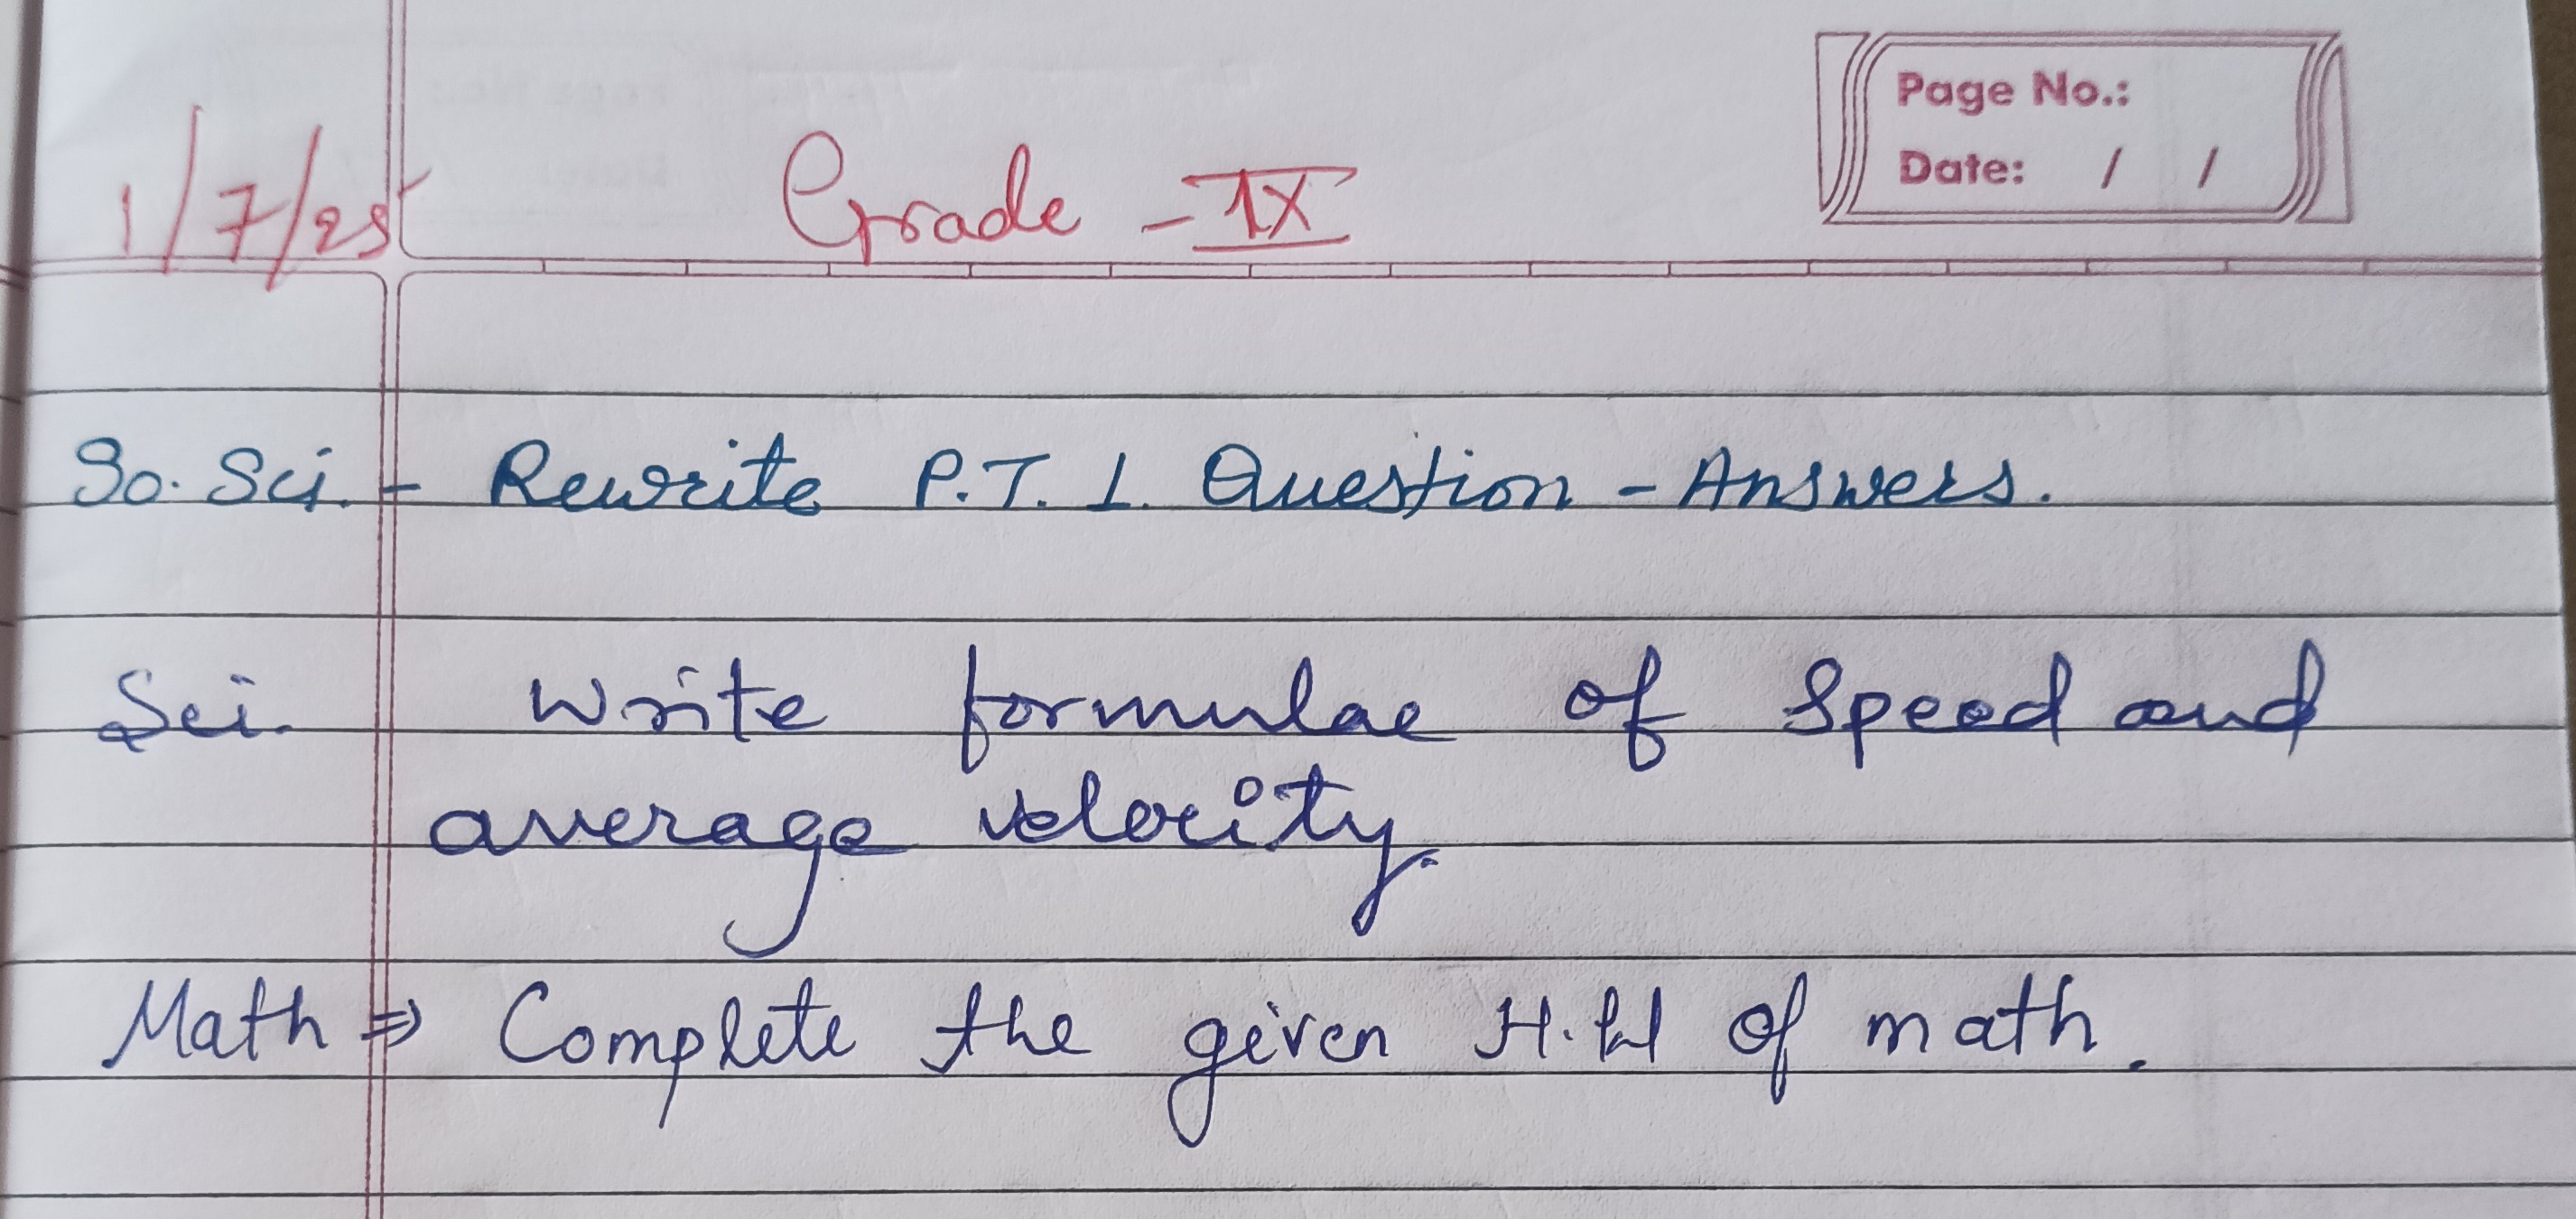 Page No.:
Date: / /
1/7/25
Grade - IX
So. Sci. - Rewrite P.T. 1. Question - Answers.
Sci. Write formulae of speed and
average velocity.
Math ⇒ Complete the given H.W of math.